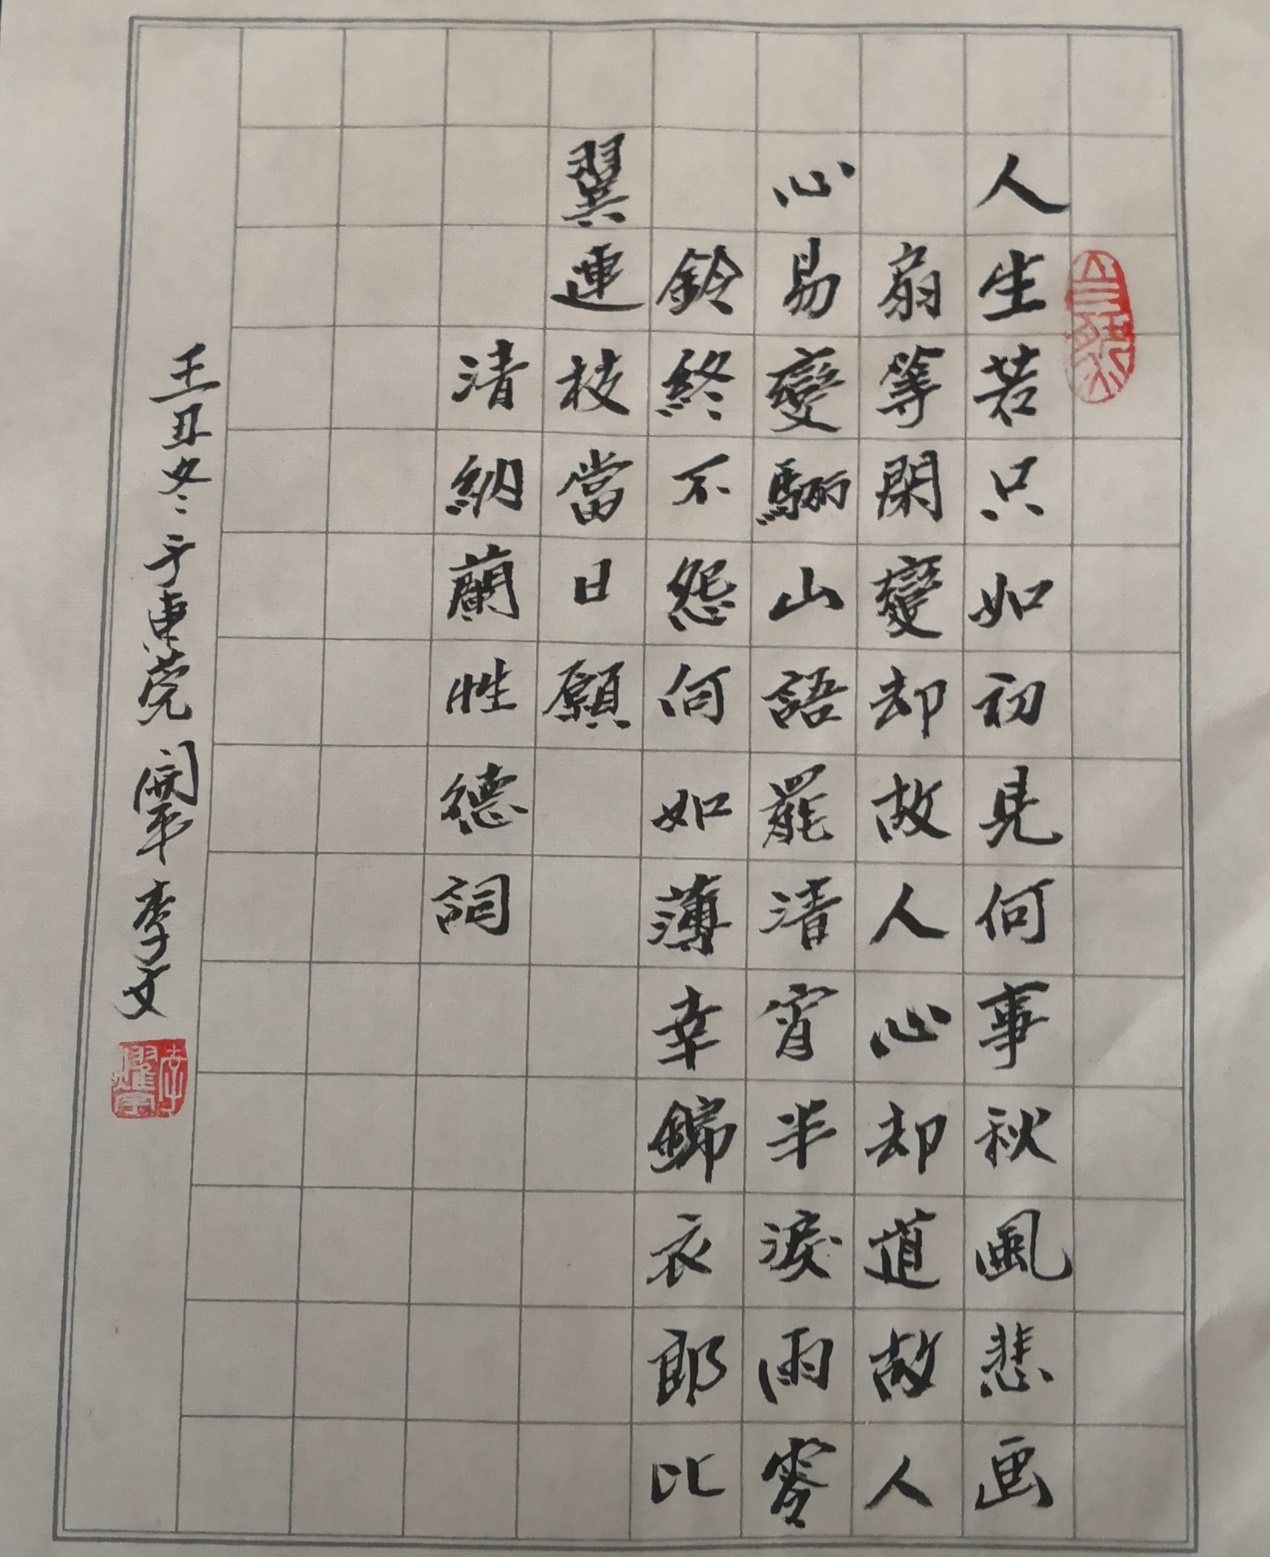 人生若只如初見何事秋風悲画
扇等閑變却故人心却道故人
心易變驪山語罷清宵半淚雨零
鈴終不怨何如薄幸錦衣郎比
翼連枝當日願
清納蘭性德詞
丑冬于東莞 李文